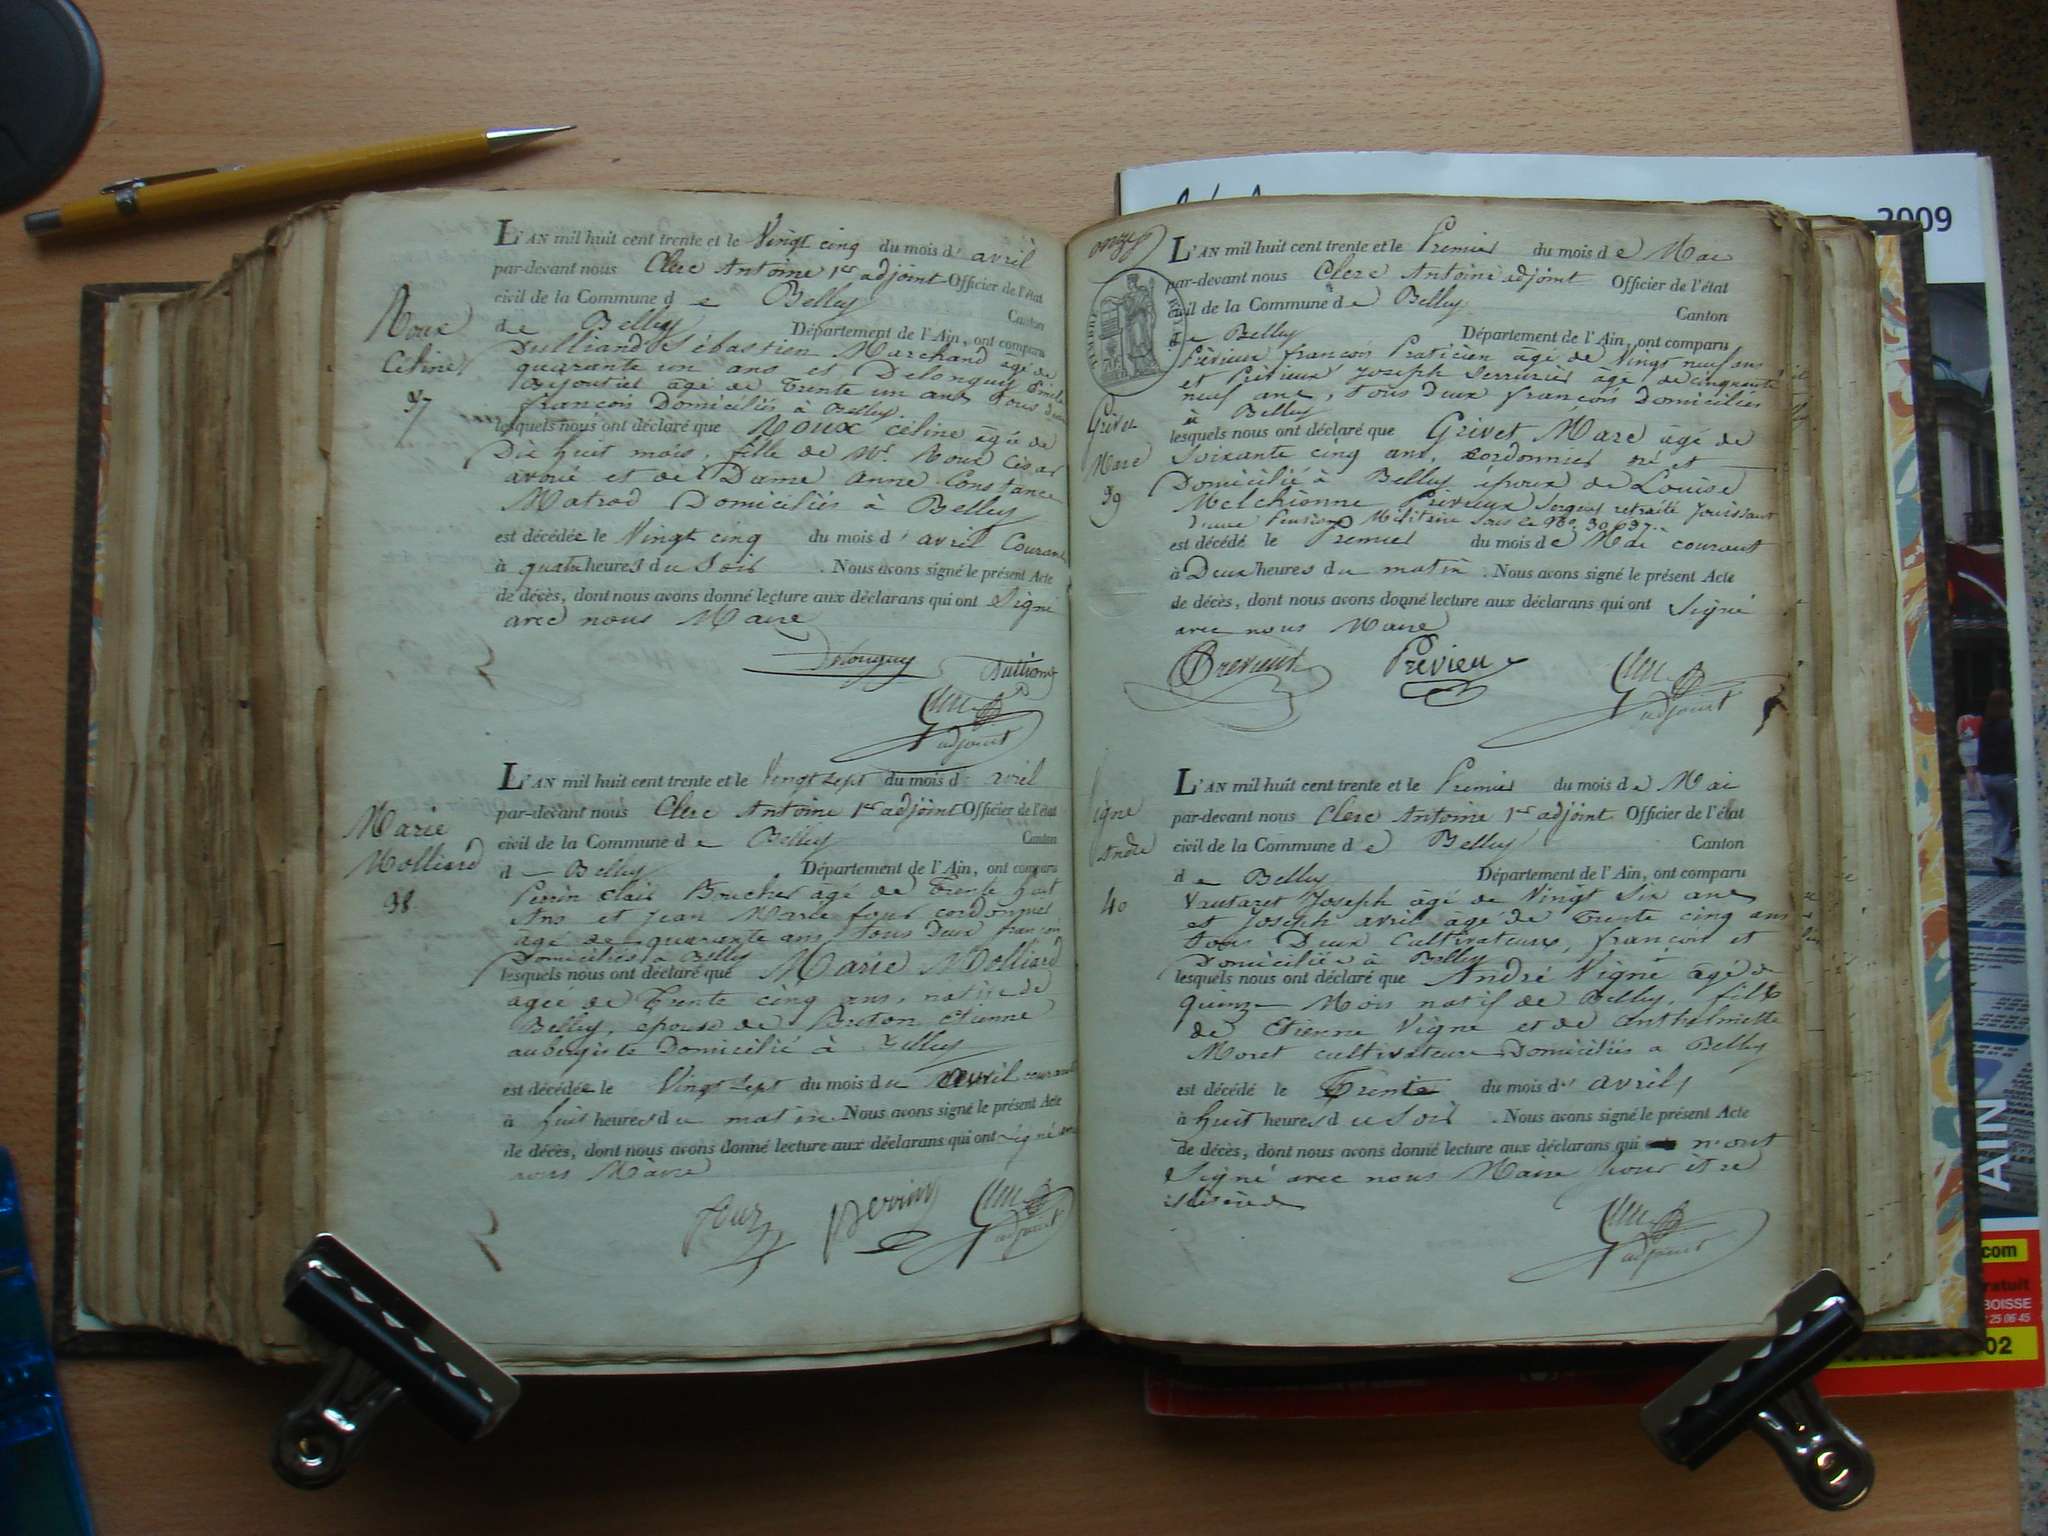 Roux
Céline
37
L'AN mil huit cent trente et le Vingt cinq du mois d' avril
par-devant nous Clerc Antoine 1er adjoint Officier de l'état
civil de la Commune d e Belley Canton
de Belley Département de l'Ain, ont comparu
Dulliand Sébastien Marchand âgé de
quarante un ans et Delonguy Emile
Bijoutier âgé de Trente un ans tous deux
françois Domiciliés à Belley.
lesquels nous ont déclaré que Roux Céline âgée de
Dix huit mois, fille de Mr. Roux César
avoué et de Dame Anne Constance
Matrod Domiciliés à Belley
est décédée le Vingt cinq du mois d' avril Courant
à quatre heures du Soir. Nous avons signé le présent Acte
de décès, dont nous avons donné lecture aux déclarans qui ont Signé
avec nous Maire
Delonguy Dulliand
Clerc
adjoint
Marie
Molliard
38
L'AN mil huit cent trente et le Vingt Sept du mois d' avril
par-devant nous Clerc Antoine 1er adjoint Officier de l'état
civil de la Commune d e Belley Canton
d e Belley Département de l'Ain, ont comparu
Perrin Clair Boucher âgé de Trente huit
Ans et Jean Marie four cordonnier
âgé de quarante ans tous Deux françois
Domiciliés à Belley
lesquels nous ont déclaré que Marie Molliard
âgée de Trente cinq ans, native de
Belley, épouse de Etienne
aubergiste Domicilié à Belley
est décédée le Vingt Sept du mois du avril courant
à huit heures du matin. Nous avons signé le présent Acte
de décès, dont nous avons donné lecture aux déclarans qui ont signé avec
nous Maire
four Perrin Clerc
adjoint
onze
TIMBRE ROYAL
Grivet
Marc
39
L'AN mil huit cent trente et le Premier du mois d e Mai
par-devant nous Clerc Antoine adjoint Officier de l'état
civil de la Commune d e Belley Canton
de Belley Département de l'Ain, ont comparu
Prévieux françois Praticien âgé de Vingt neuf ans
et Prévieux Joseph Serrurier âgé de cinquante
neuf ans, tous Deux françois Domiciliés
à Belley
lesquels nous ont déclaré que Grivet Marc âgé de
Soixante cinq ans, cordonnier né et
Domicilié à Belley époux de Louise
Melchionne Prévieux Sergent retraité Jouissant
d'une Pension Militaire Sous le No. 30637.
est décédé le Premier du mois d e Mai courant
à Deux heures du matin. Nous avons signé le présent Acte
de décès, dont nous avons donné lecture aux déclarans qui ont Signé
avec nous Maire
Prévieu Clerc
adjoint
Vigne
André
40
L'AN mil huit cent trente et le Premier du mois d e Mai
par-devant nous Clerc Antoine 1er adjoint Officier de l'état
civil de la Commune d e Belley Canton
d e Belley Département de l'Ain, ont comparu
Vautaret Joseph âgé de Vingt Six ans
et Joseph avril âgé de Trente cinq ans
tous Deux Cultivateurs, françois et
Domiciliés à Belley
lesquels nous ont déclaré que André Vigne âgé de
quinze Mois natif de Belley, fils
de Etienne Vigne et de Anthelmette
Moret cultivateurs Domiciliés à Belley
est décédé le Trente du mois d' avril,
à huit heures du Soir. Nous avons signé le présent Acte
de décès, dont nous avons donné lecture aux déclarans qui n'ont
Signé avec nous Maire pour être
Clerc
adjoint
2009
AIN
.com
ratuit
BOISSE
25 06 45
02